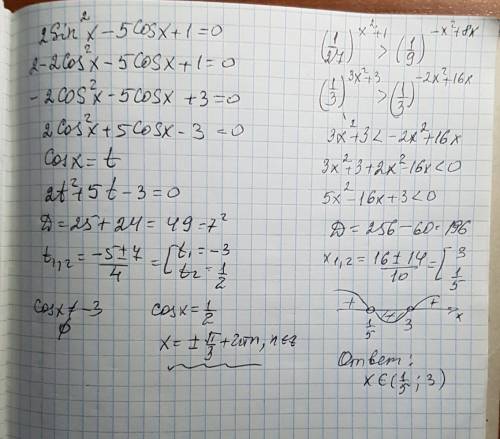 2Sin²x - 5cosx + 1 = 0
2 - 2cos²x - 5cosx + 1 = 0
-2cos²x - 5cosx + 3 = 0
2cos²x + 5cosx - 3 = 0
cosx = t
2t² + 5t - 3 = 0
D = 25 + 24 = 49 = 7²
t₁,₂ = (-5 ± 7)/4 = [t₁ = -3
t₂ = 1/2
cosx ≠ -3
∅
cosx = 1/2
x = ± π/3 + 2πn, n∈z
(1/27)^(x²+1) > (1/9)^(-x²+8x)
(1/3)^(3x²+3) > (1/3)^(-2x²+16x)
3x² + 3 < -2x² + 16x
3x² + 3 + 2x² - 16x < 0
5x² - 16x + 3 < 0
D = 256 - 60 = 196
x₁,₂ = (16 ± 14)/10 = [3
1/5
+ - +
1/5 3 x
Ответ:
x∈(1/5; 3)